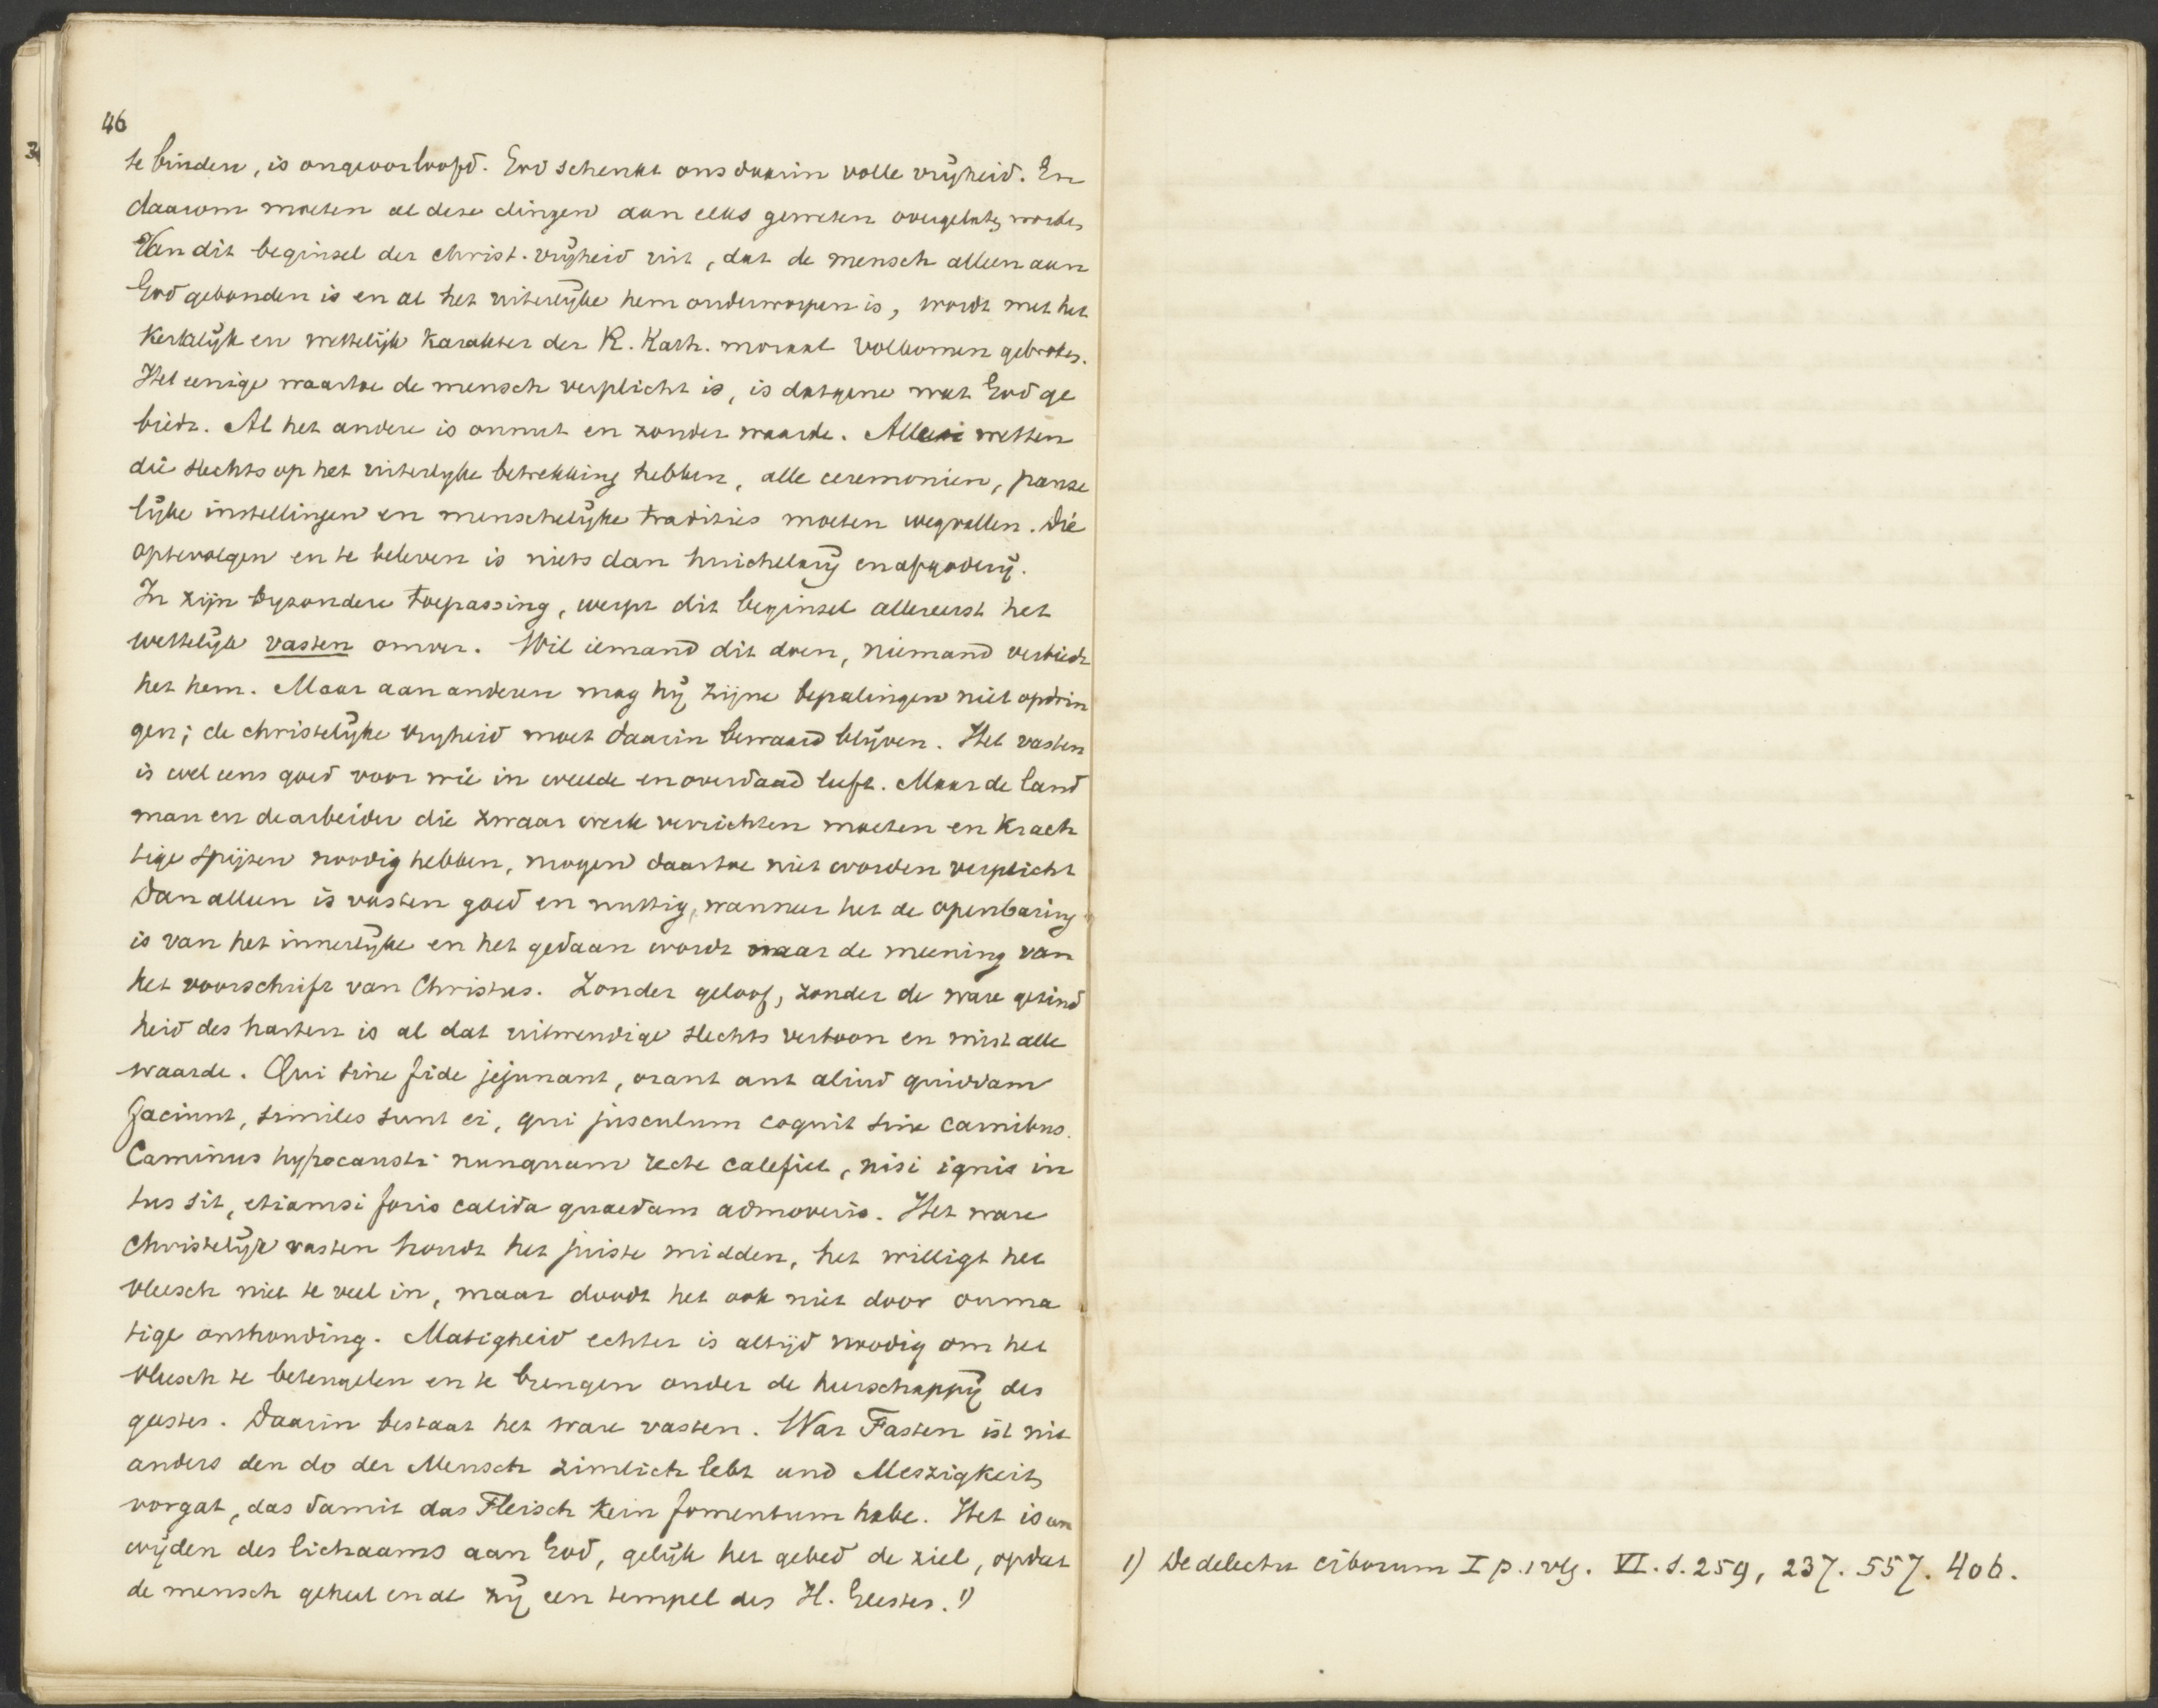 46
te binden, is ongeoorloofd. God schenkt ons daarin volle vrijheid. En
daarom moeten al deze dingen aan elks geweten overgelaten worden
Van dit beginsel der christ. vrijheid uit, dat de mensch alleen aan
God gebonden is en al het uiterlijke hem onderworpen is, wordt met het
kerkelijk en wettelijk karakter der R. Kath. moraal volkomen gebroken.
Het eenige waartoe de mensch verplicht is, is datgene wat God ge
biedt. Al het andere is onnut en zonder waarde. Alle wetten
die slechts op het uiterlijke betrekking hebben, alle ceremonien, panse
lijke instellingen en menschelijke tradities moeten wegvallen. Die
optevolgen en te beleven is niets dan huichelarij en afgoderij.
In zijn byzondere toepassing, werpt dit beginsel allereerst het
wettelijk vasten omver. Wil iemand dit doen, niemand verbiedt
het hem. Maar aan anderen mag hij zijne bepalingen niet opdrin
gen; de christelijke vryheid moet daarin bewaard blijven. Het vasten
is wel eens goed voor wie in weelde en overdaad leeft. Maar de land
man en de arbeider die zwaar werk verrichten moeten en krach
tige spijzen noodig hebben, mogen daartoe niet worden verplicht
Dan alleen is vasten goed en nuttig, wanneer het de openbaring
is van het innerlijke en het gedaan wordt naar de meening van
het voorschrift van Christus. Zonder geloof, zonder de ware gezind
heid des harten is al dat uitwendige slechts vertoon en mist alle
waarde. Qui sine fide jejunant, orant aut aliud quiddam
faciunt, similes sunt ei, qui jusculum coquit sine carnibus.
Caminus hypocausti nunquam recte calefiet, nisi ignis in
tus sit, etiamsi foris calida quaedam admoveris. Het ware
Christelijk vasten houdt het juiste midden, het willigt het
vleesch niet te veel in, maar doodt het ook niet door onma
tige onthouding. Matigheid echter is altijd noodig om het
vleesch te beteugelen en te brengen onder de heerschappij des
geestes. Daarin bestaat het ware vasten. War Fasten ist nit
anders den do der Mensch zimlich lebt und Meszigkeit
vorgat, das damit das Fleisch kein fomentum habe. Het is een
wijden des lichaams aan God, gelijk het gebed de ziel, opdat
de mensch geheel en al zij een tempel des H. Geestes. 1)
1) De delectu ciborum I p. 1 vlg. VI. s. 259, 237. 557. 406.